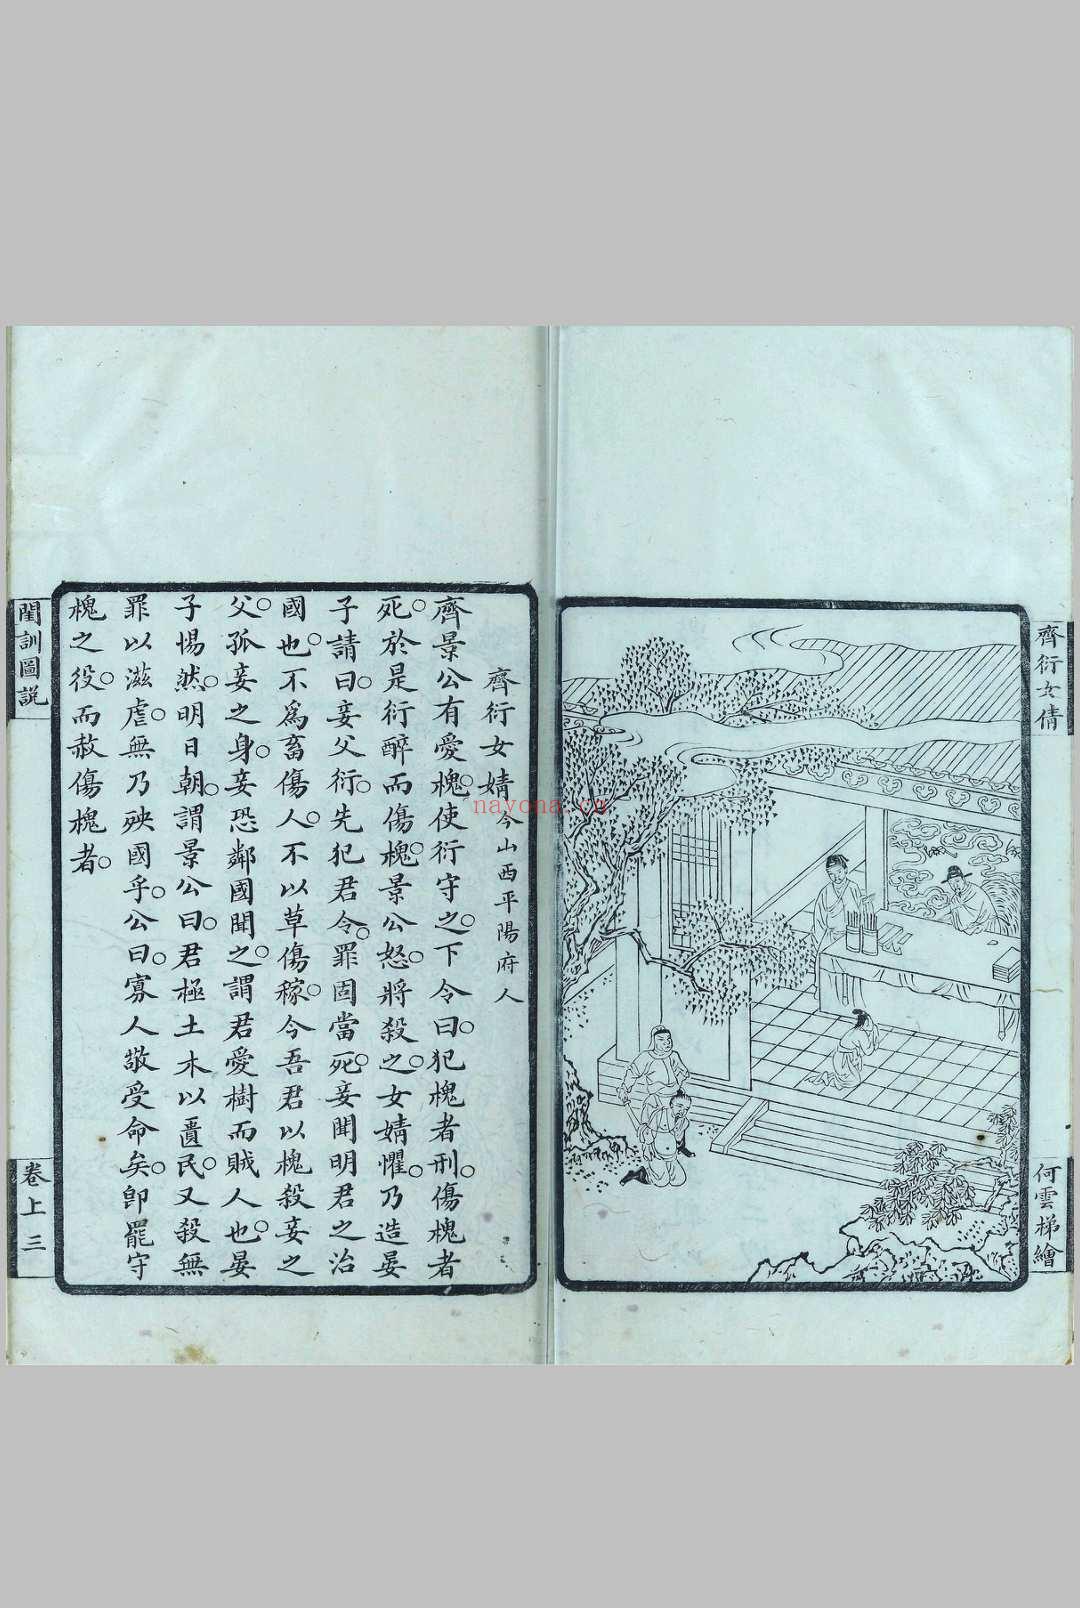 齊衍女倩
何雲梯繪
齊衍女婧今山西平陽府人
齊景公有愛槐使衍守之下令曰犯槐者刑傷槐者
死於是衍醉而傷槐景公怒將殺之女婧懼乃造晏
子請曰妾父衍先犯君令罪固當死妾聞明君之治
國也不爲畜傷人不以草傷稼今吾君以槐殺妾之
父孤妾之身妾恐鄰國聞之謂君愛樹而賊人也晏
子惕然明日朝謂景公曰君極土木以匱民又殺無
罪以滋虐無乃殃國乎公曰寡人敬受命矣卽罷守
槐之役而赦傷槐者
閨訓圖説
卷上 三
nayona.cn